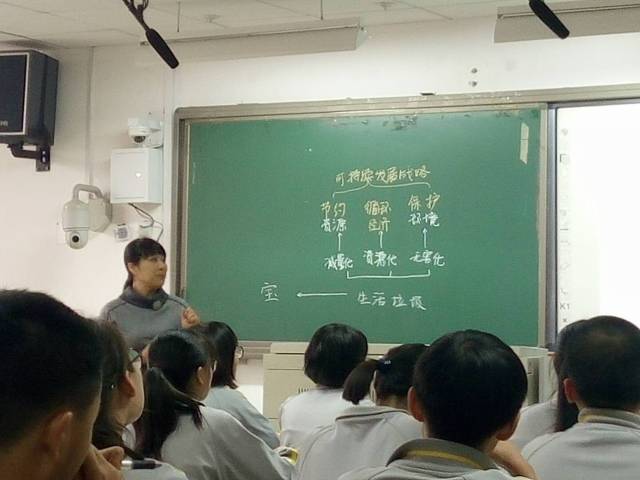 可持续发展战略
节约 循环 保护
资源 经济 环境
减量化 资源化 无害化
宝 生活垃圾
K1